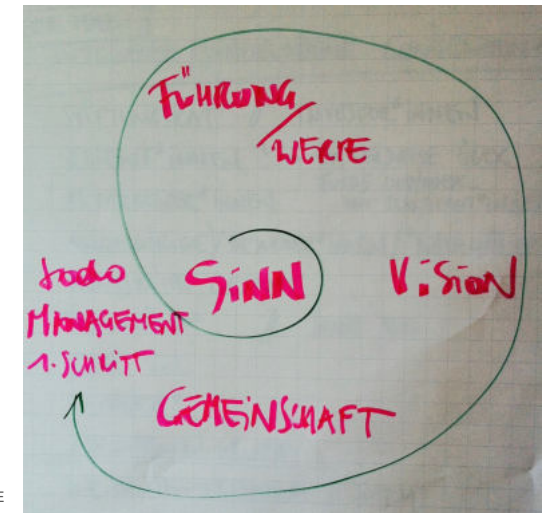 FÜHRUNG
/ WERTE
SiNN
ViSioN
todo
MANAGEMENT
1. SCHRiTT
GEMEiNSCHAFT
E